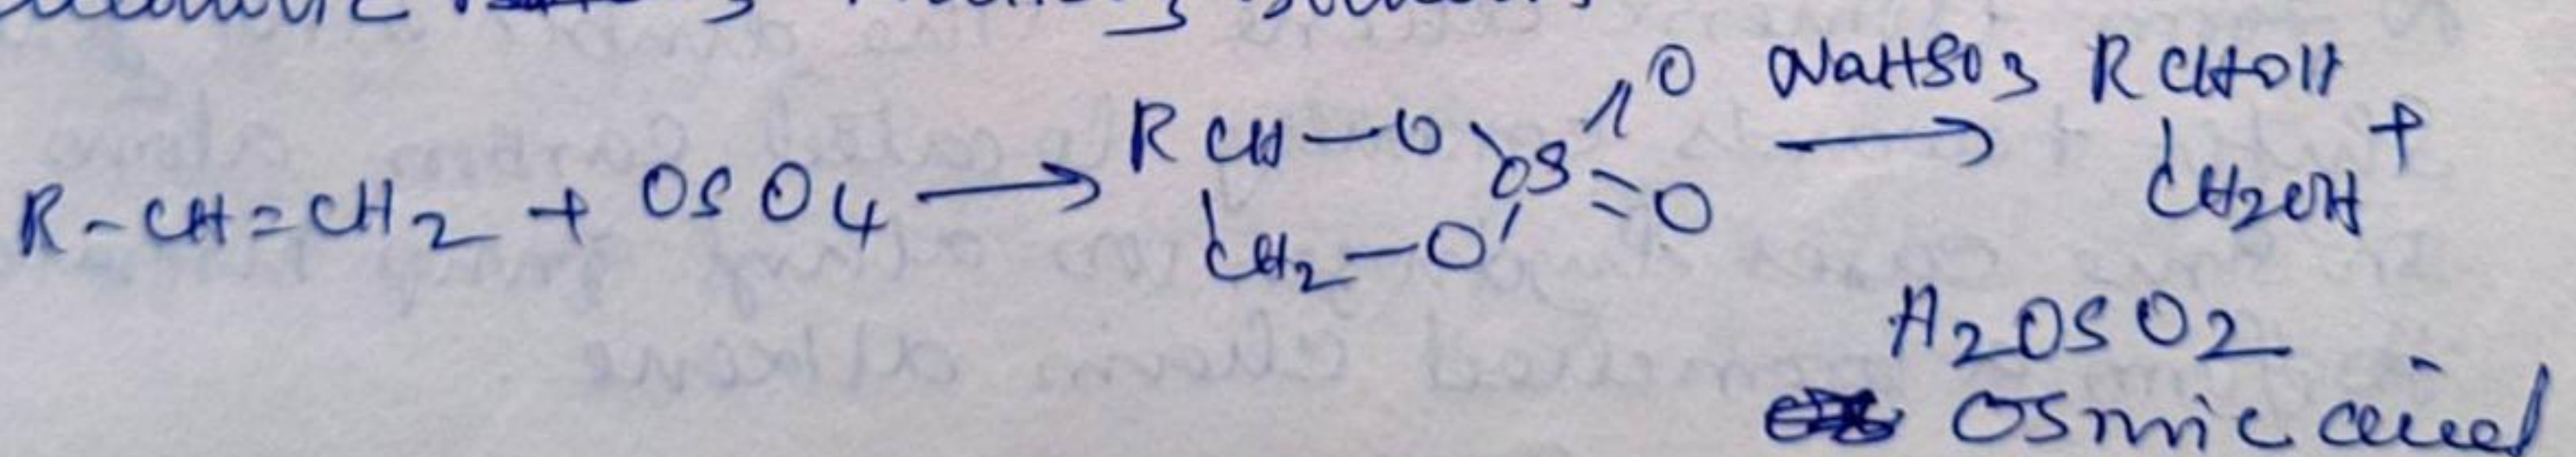 R-CH=CH2 + OSO4 → RCH-O OS =O =O NaHSO3 → RCHOH +
CH2-O CH2OH
H2OSO2
Osmic acid